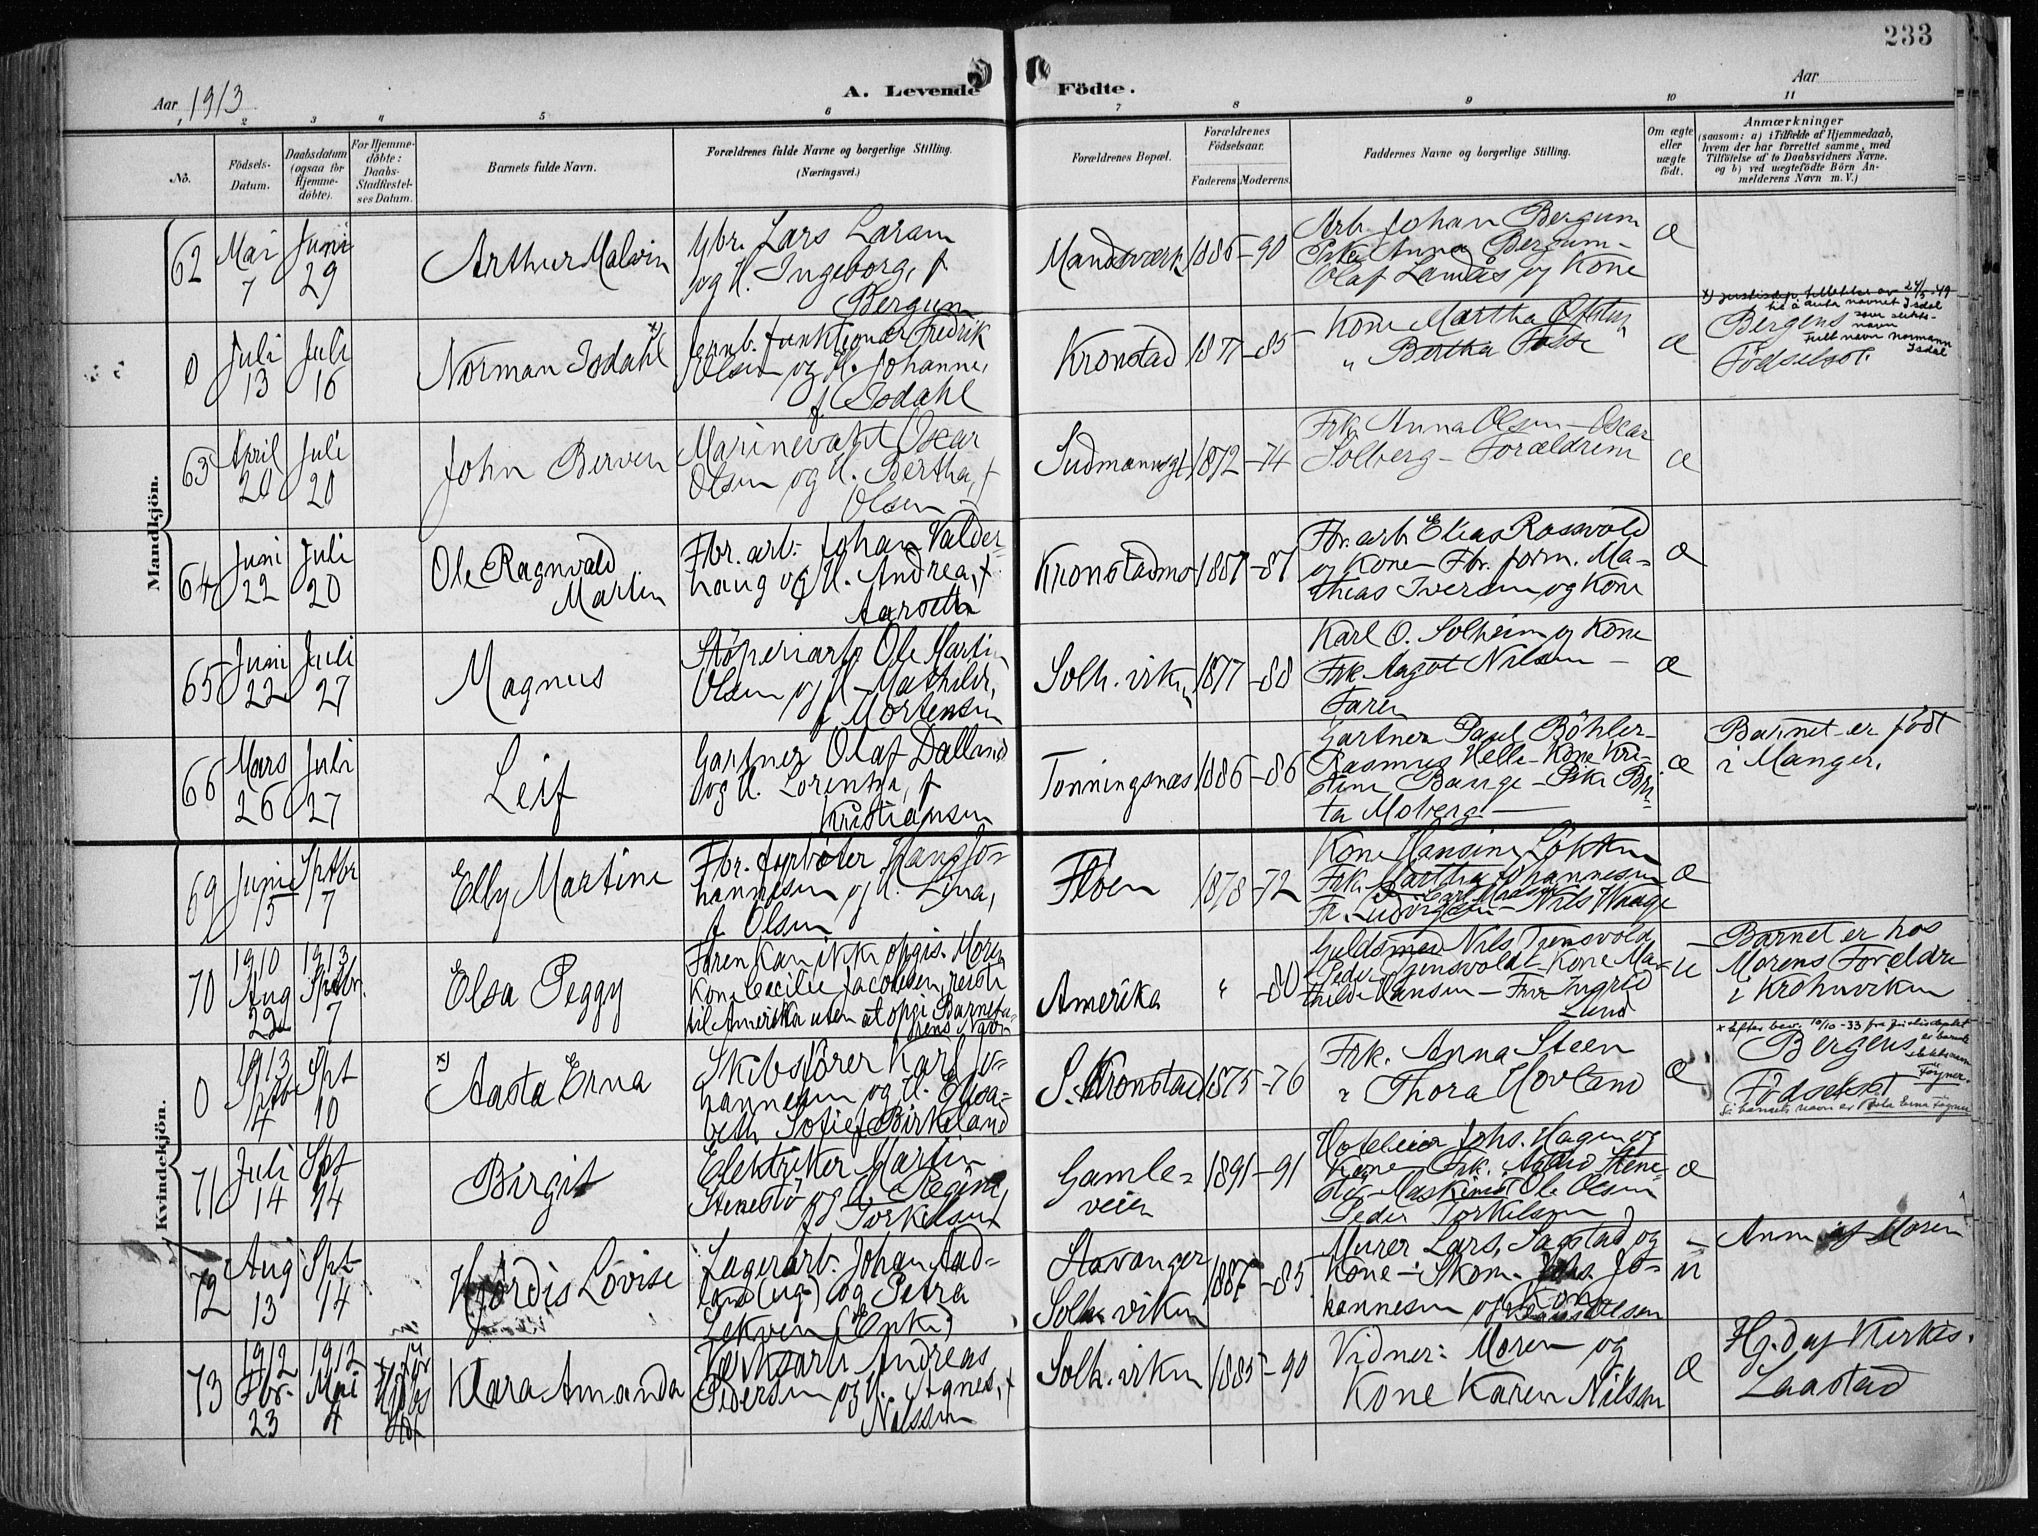 233
Aar 1913
A. Levende Födte.
Aar
1 2 3 4 5 6 7 8 9 10 11
No.
Födsels-
Datum.
Daabsdatum
(ogsaa for
Hjemme-
döbte).
For Hjemme-
döbte:
Daabs-
Stadfæstel-
ses Datum.
Barnets fulde Navn.
Forældrenes fulde Navne og borgerlige Stilling.
(Næringsvei.)
Forældrenes Bopæl.
Forældrenes
Födselsaar.
Faderens. Moderens.
Faddernes Navne og borgerlige Stilling.
Om ægte
eller
uægte
født.
Anmærkninger
(saasom: a) i Tilfælde af Hjemmedaab,
hvem der har forrettet samme, med
Tilföielse af to Daabsvidners Navne.
og b) ved uegtefödte Börn An-
melderens Navn m. V.)
Mandkjön.
62
Mai
7
Juni
29
Arthur Malvin
Gbr. Lars Larsen
og H. Ingeborg, f
Bergum
Mandsværk
1886-90
Arb. Johan Bergum
Pike Anna Bergum-
Olaf Landås og Kone
æ
0
Juli
13
Juli
16
Norman Isdahl x)
Jernb. funktionær Fredrik
Olsen og H. Johanne,
f. Isdahl
Kronstad
1877-85
Kone Martha
" Bertha Fosse
æ
x) Justisdep. tillatelse av 24/5-49
til å anta navnet Isdal
som slekts-
navn
Fullt navn Normann
Isdal
Bergens
Födselsst.
63
April
20
Juli
20
John Berven
Marinevagt Oscar
Olsen og H. Bertha, f
Olsen
Sudmannsgt
1872-74
Frk. Anna Olsen - Oscar
Solberg - Forældrene
æ
64
Juni
22
Juli
20
Ole Ragnvald
Martin
Fbr. arb. Johan Valder-
haug og H. Andrea, f.
Aarseth
Kronstadmo
1887-87
Fbr. arb. Elias Rosvold
og Kone Fbr. form. Ma-
thias Iversen og Kone
æ
65
Juni
22
Juli
27
Magnus
Støperiarb Ole Martin
Olsen og H. Mathilde,
f Mortensen
Solh. viken
1877-88
Karl O. Solheim og Kone
Frk. Aagot Nilsen -
Faren
æ
66
Mars
26
Juli
27
Leif
Gartner Olaf Dalland
og H. Lorentze, f
Kristiansen
Tonningsnæs
1886-86
Gartner Paul Böhler-
Rasmus Helle - Kone Kri-
stine Bauge - Pike Bri-
ta Moberg
æ
Barnet er født
i Manger.
Kvindekjön.
69
Juni
15
Sptbr
7
Elly Martine
Fbr. Hans Jo-
hannesen og H. Lina,
f. Olsen
Flöen
1878-72
Kone Hansine Løkken
Frk. Martha Johannesen
Carl Madsen
Fr. Ludvigsen - Nils Waage
æ
70
1910
Aug
22
1913
Sptbr.
7
Elsa Peggy
Faren kan ikke opgis. Moren
Kone Cecilie Jacobsen, reiste
til Amerika uten at opgi Barnefa-
drens Navn
Amerika
" -80
Guldsmed Nils Tjensvold
Peder Tjensvold - Kone Ma-
thilde Hansen - Frk Ingrid
Lund
u
Barnet er hos
Morens Foreldre
i Krohnviken
0
1913
Sptbr
4
Spt
10
x) Aasta Erna
Skibsfører Karl Jo-
hannesen og H. Elisa-
beth Sofie f Birkeland
S. Kronstad
1875-76
Frk. Anna Steen
" Thora Hovland
æ
x Efter bev. 10/10-33 fra Justisdeptet
er barnets
slektsnavn
Føyner.
Bergens
Födselsst
71
Juli
14
Spt
14
Birgit
Elektriker Martin
Stenestö og H. Regine,
f Torkelsen
Gamle-
veien
1891-91
Hoteleier Johs. Hagen og
Kone Frk. Astrid Stene-
stö - Maskinist Ole Olsen
Peder Torkelsen
æ
72
Aug
13
Spt
14
Hjördis Lövise
Lagerarb. Johan Aad-
land (ug.) og Petra
Lekven (Enke)
Stavanger
Solh. viken
1887-85
Murer Lars Sagstad og
Kone - Skom. Johs. Jo-
hannesen og Kone
u
Anm af Moren
73
1912
Fbr.
23
1912
Mai
4
Klara Amanda
Verksarb. Andreas
Pedersen og H. Agnes, f
Nilssen
Solh. viken
1885-90
Vidner: Moren og
Kone Karen Nilssen
æ
Hj. d af Kirkes.
Laastad